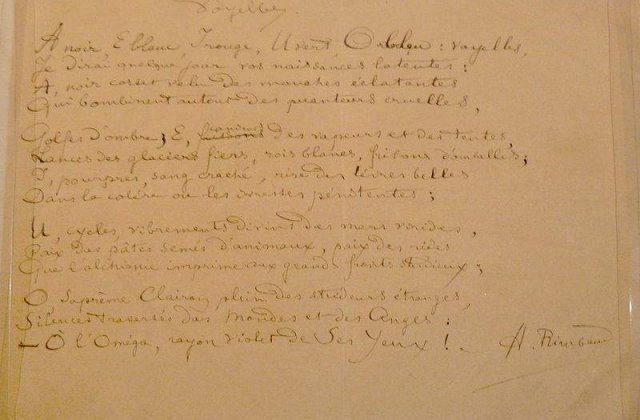 Voyelles.
A noir, E blanc, I rouge, U vert, O bleu : voyelles,
Je dirai quelque jour vos naissances latentes :
A, noir corset velu des mouches éclatantes
Qui bombinent autour des puanteurs cruelles,
Golfes d'ombre ; E, candeurs des vapeurs et des tentes,
Lances des glaciers fiers, rois blancs, frissons d'ombelles ;
I, pourpres, sang craché, rire des lèvres belles
Dans la colère ou les ivresses pénitentes ;
U, cycles, vibrements divins des mers virides,
Paix des pâtis semés d'animaux, paix des rides
Que l'alchimie imprime aux grands fronts studieux ;
O, Suprême Clairon plein des strideurs étranges,
Silences traversés des Mondes et des Anges :
– O l'Oméga, rayon violet de Ses Yeux ! – A. Rimbaud